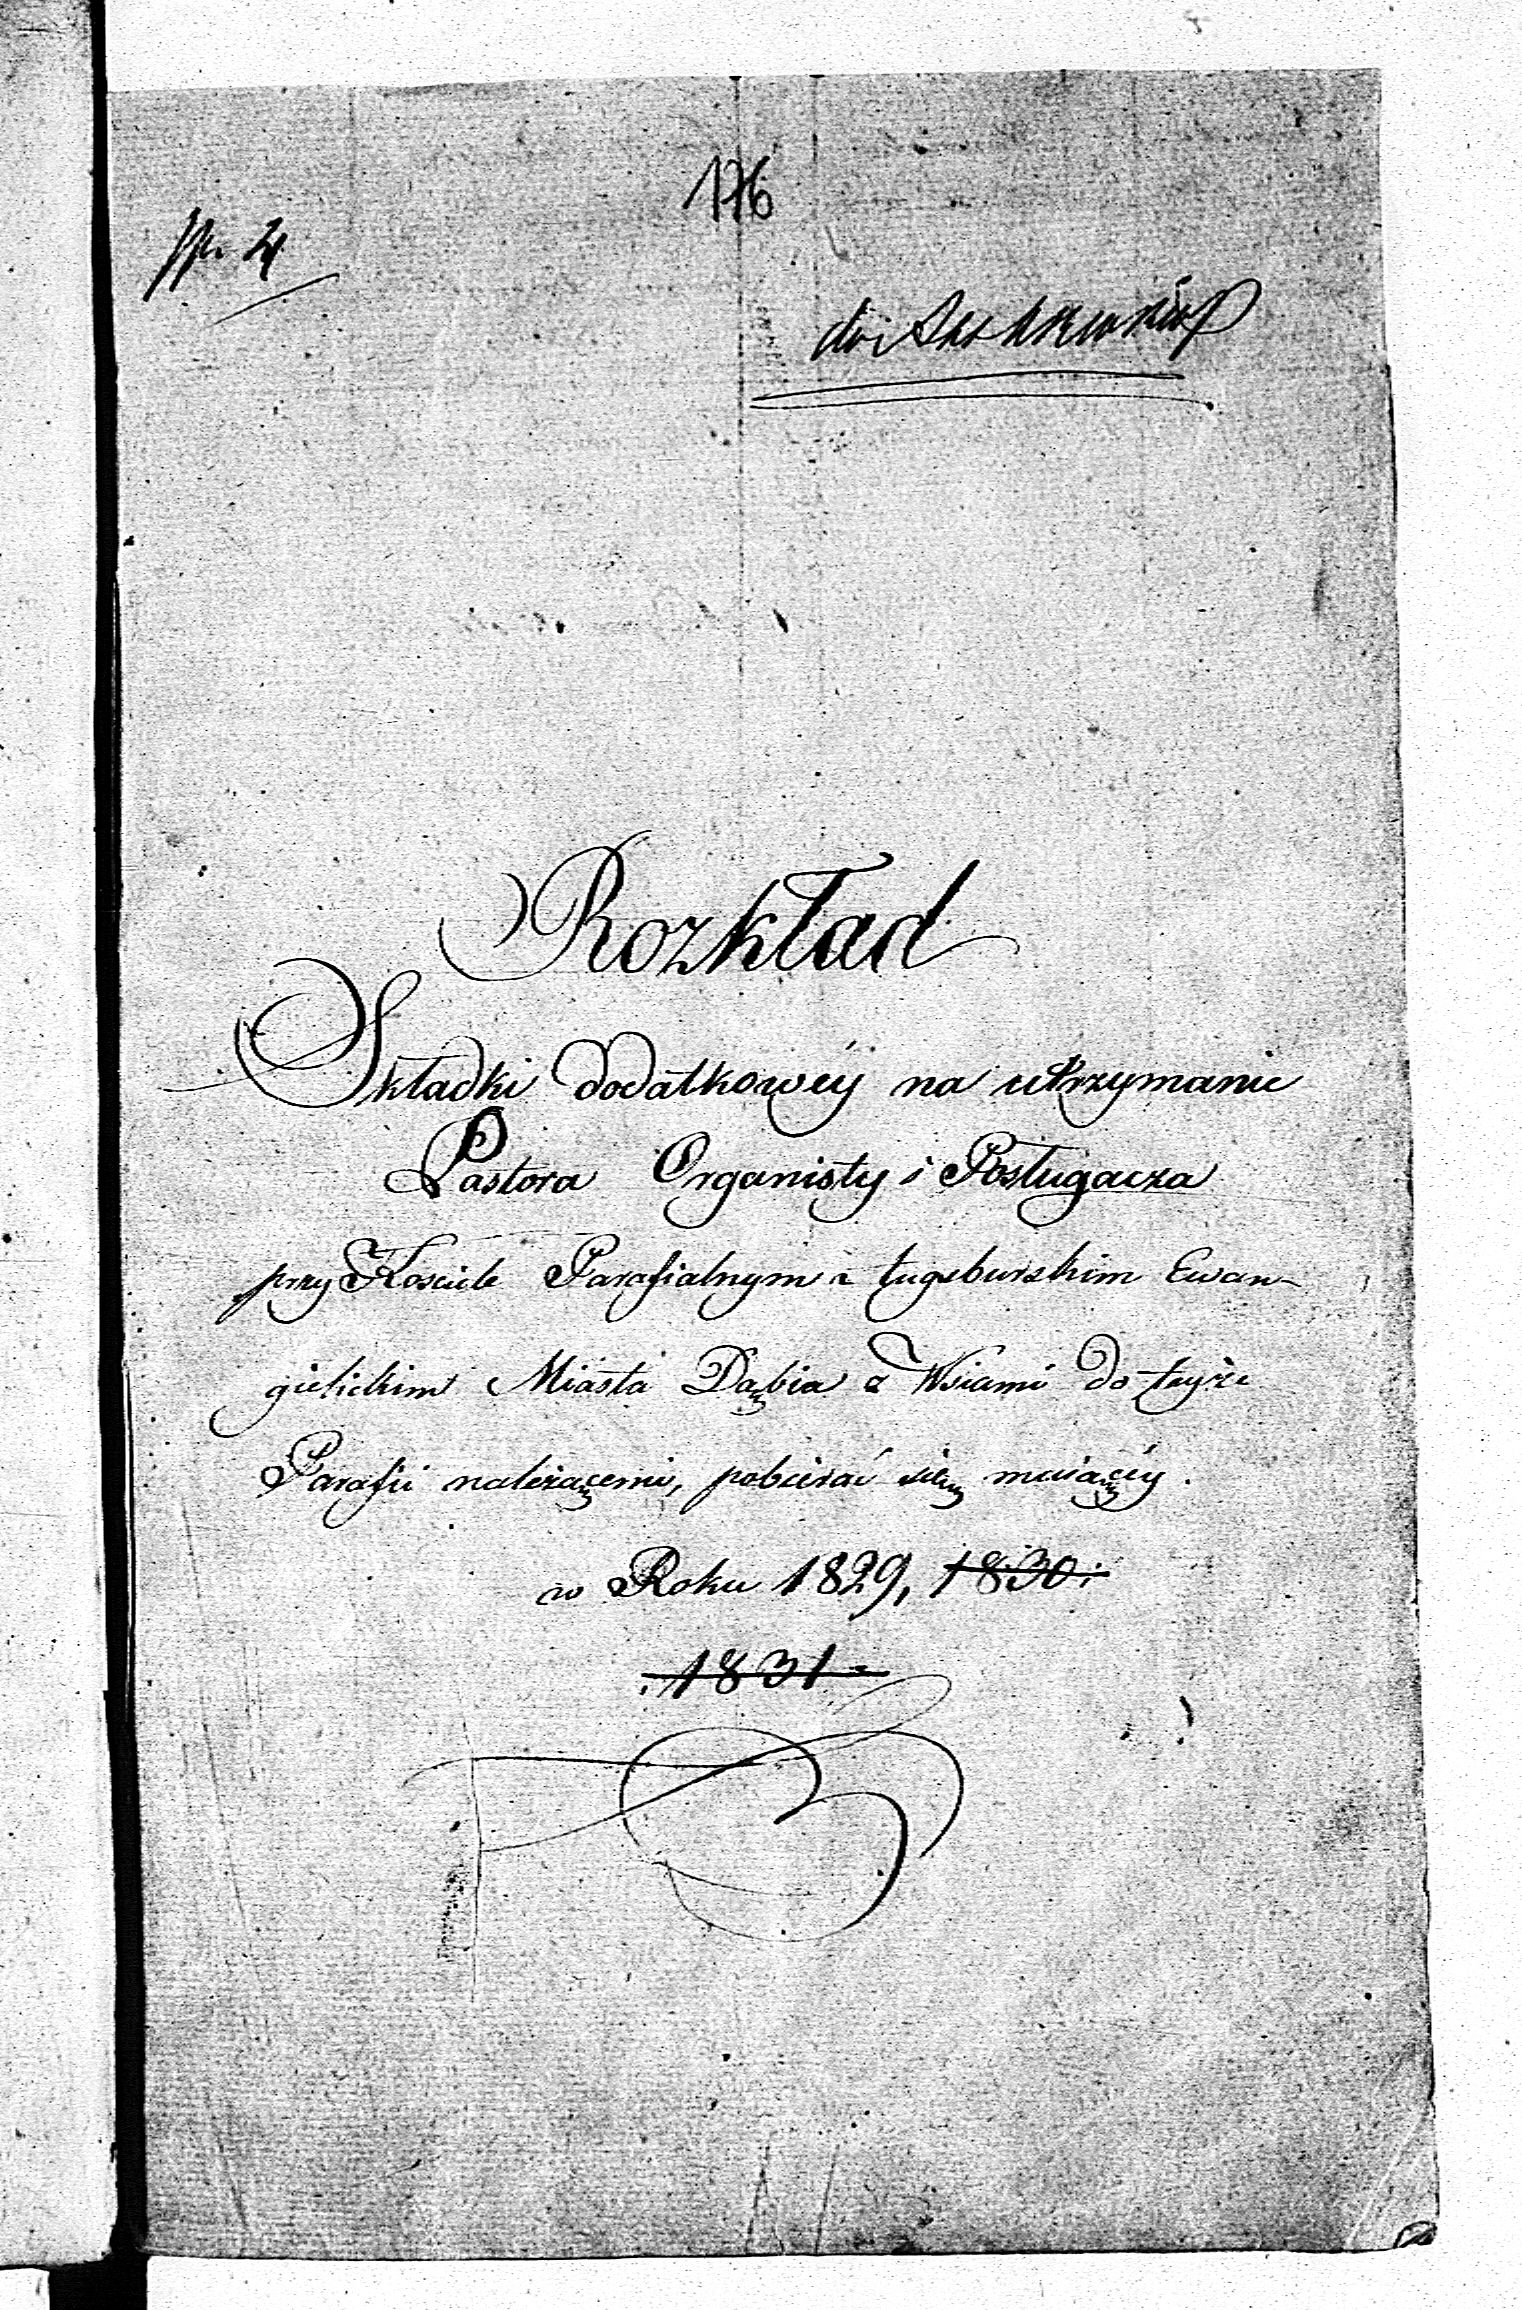 176
Rozkład
Składki dodatkowéy na utrzymanie
Pastora Organisty i Posługacza
przy Kosciele Parafialnym Augsburskim Ewan-
gielickim Miasta Dąbia z Wsiami do teyże
Parafii należącemi, pobierać się maiącéy.
w Roku 1829, 1830 i
1831